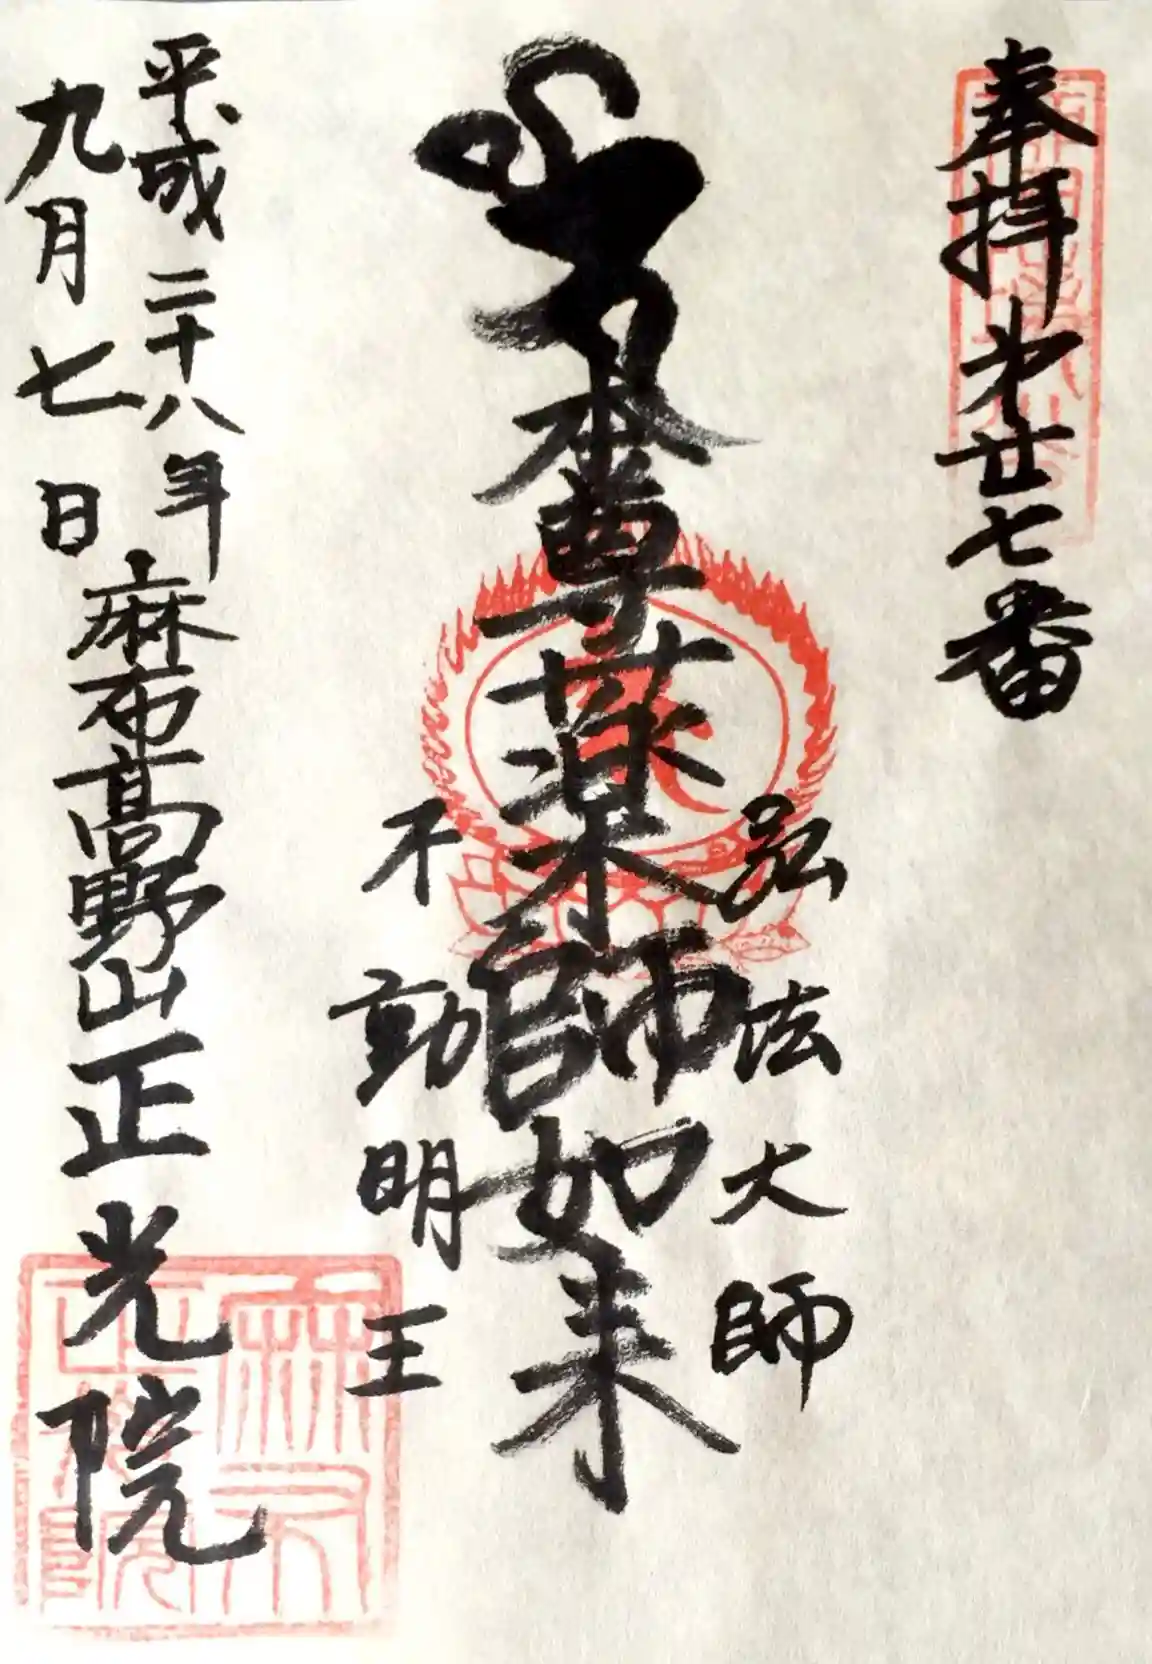 奉拝 第廿七番
弘法大師
本尊薬師如来
不動明王
平成二十八年
九月七日
麻布高野山正光院